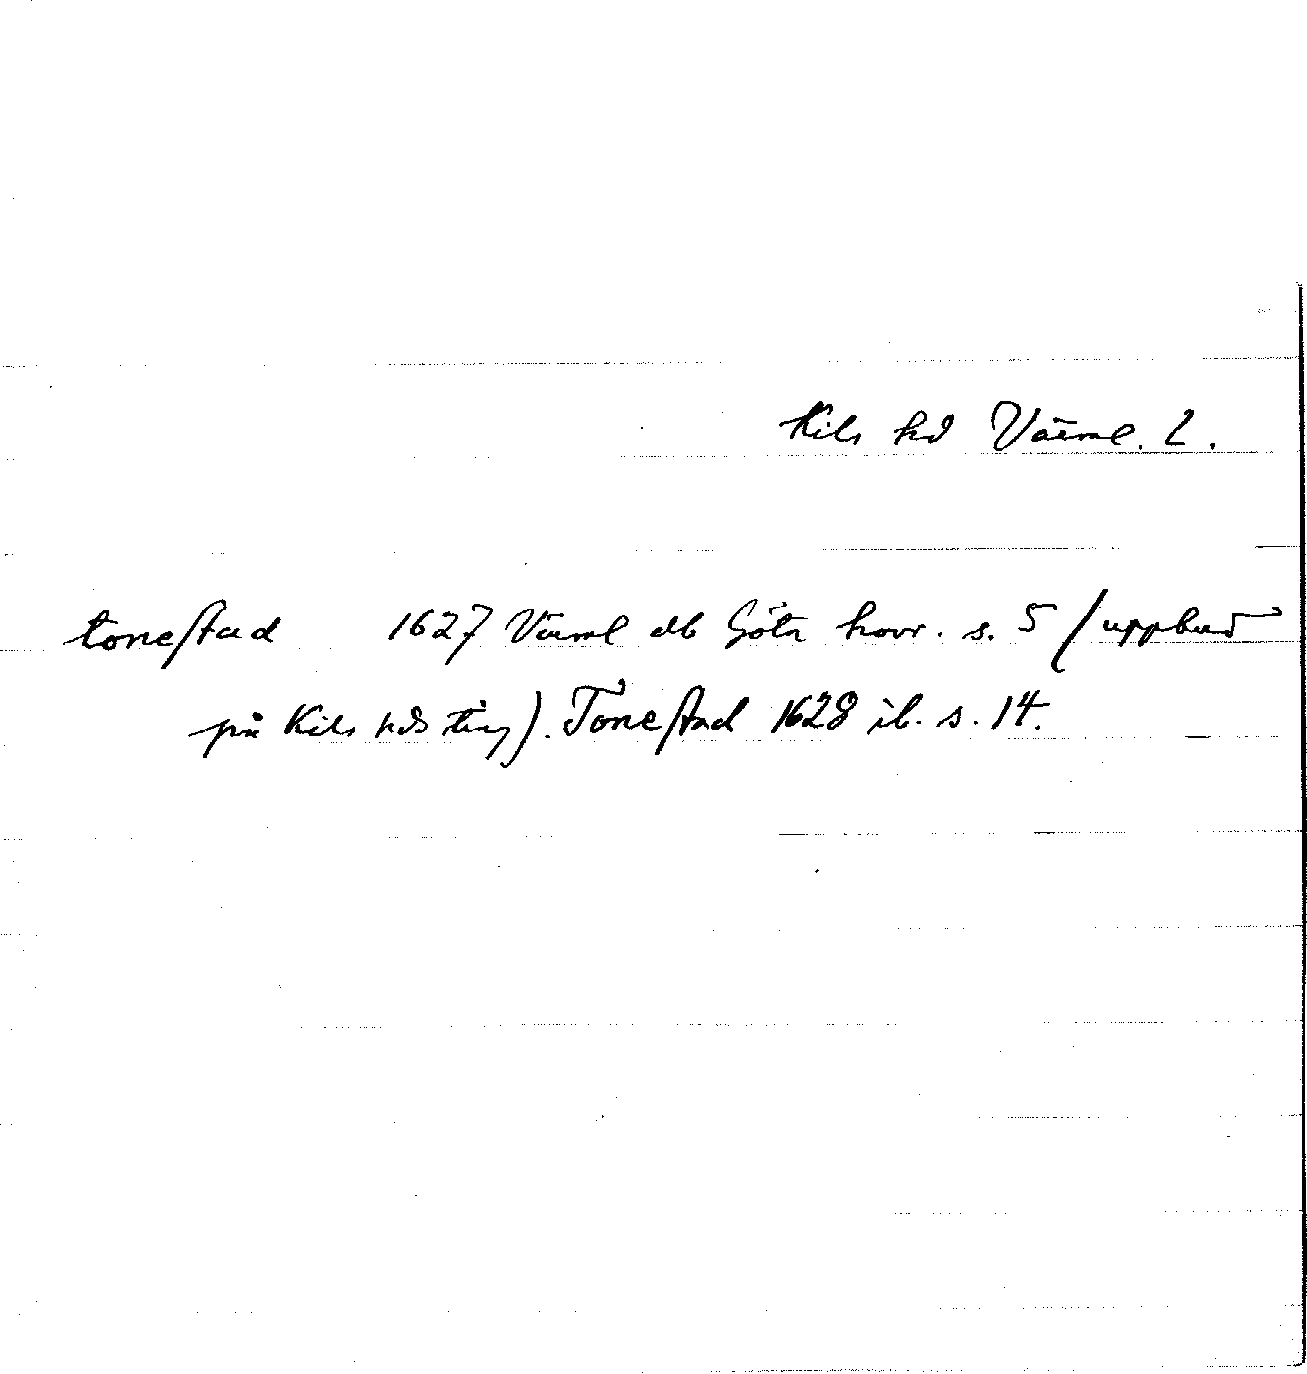 Kils hd Värml. L.
tonestad 1627 Värml db Göta hovr. s. 5 (uppbud
på Kils hds ting). Tonestad 1628 ib. s. 14.